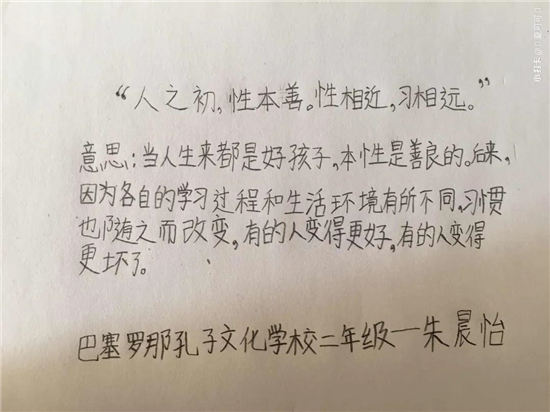 “人之初,性本善。性相近,习相远。”
意思:当人生来都是好孩子,本性是善良的。后来,
因为各自的学习过程和生活环境有所不同,习惯
也随之而改变,有的人变得更好,有的人变得
更坏了。
巴塞罗那孔子文化学校二年级—朱晨怡